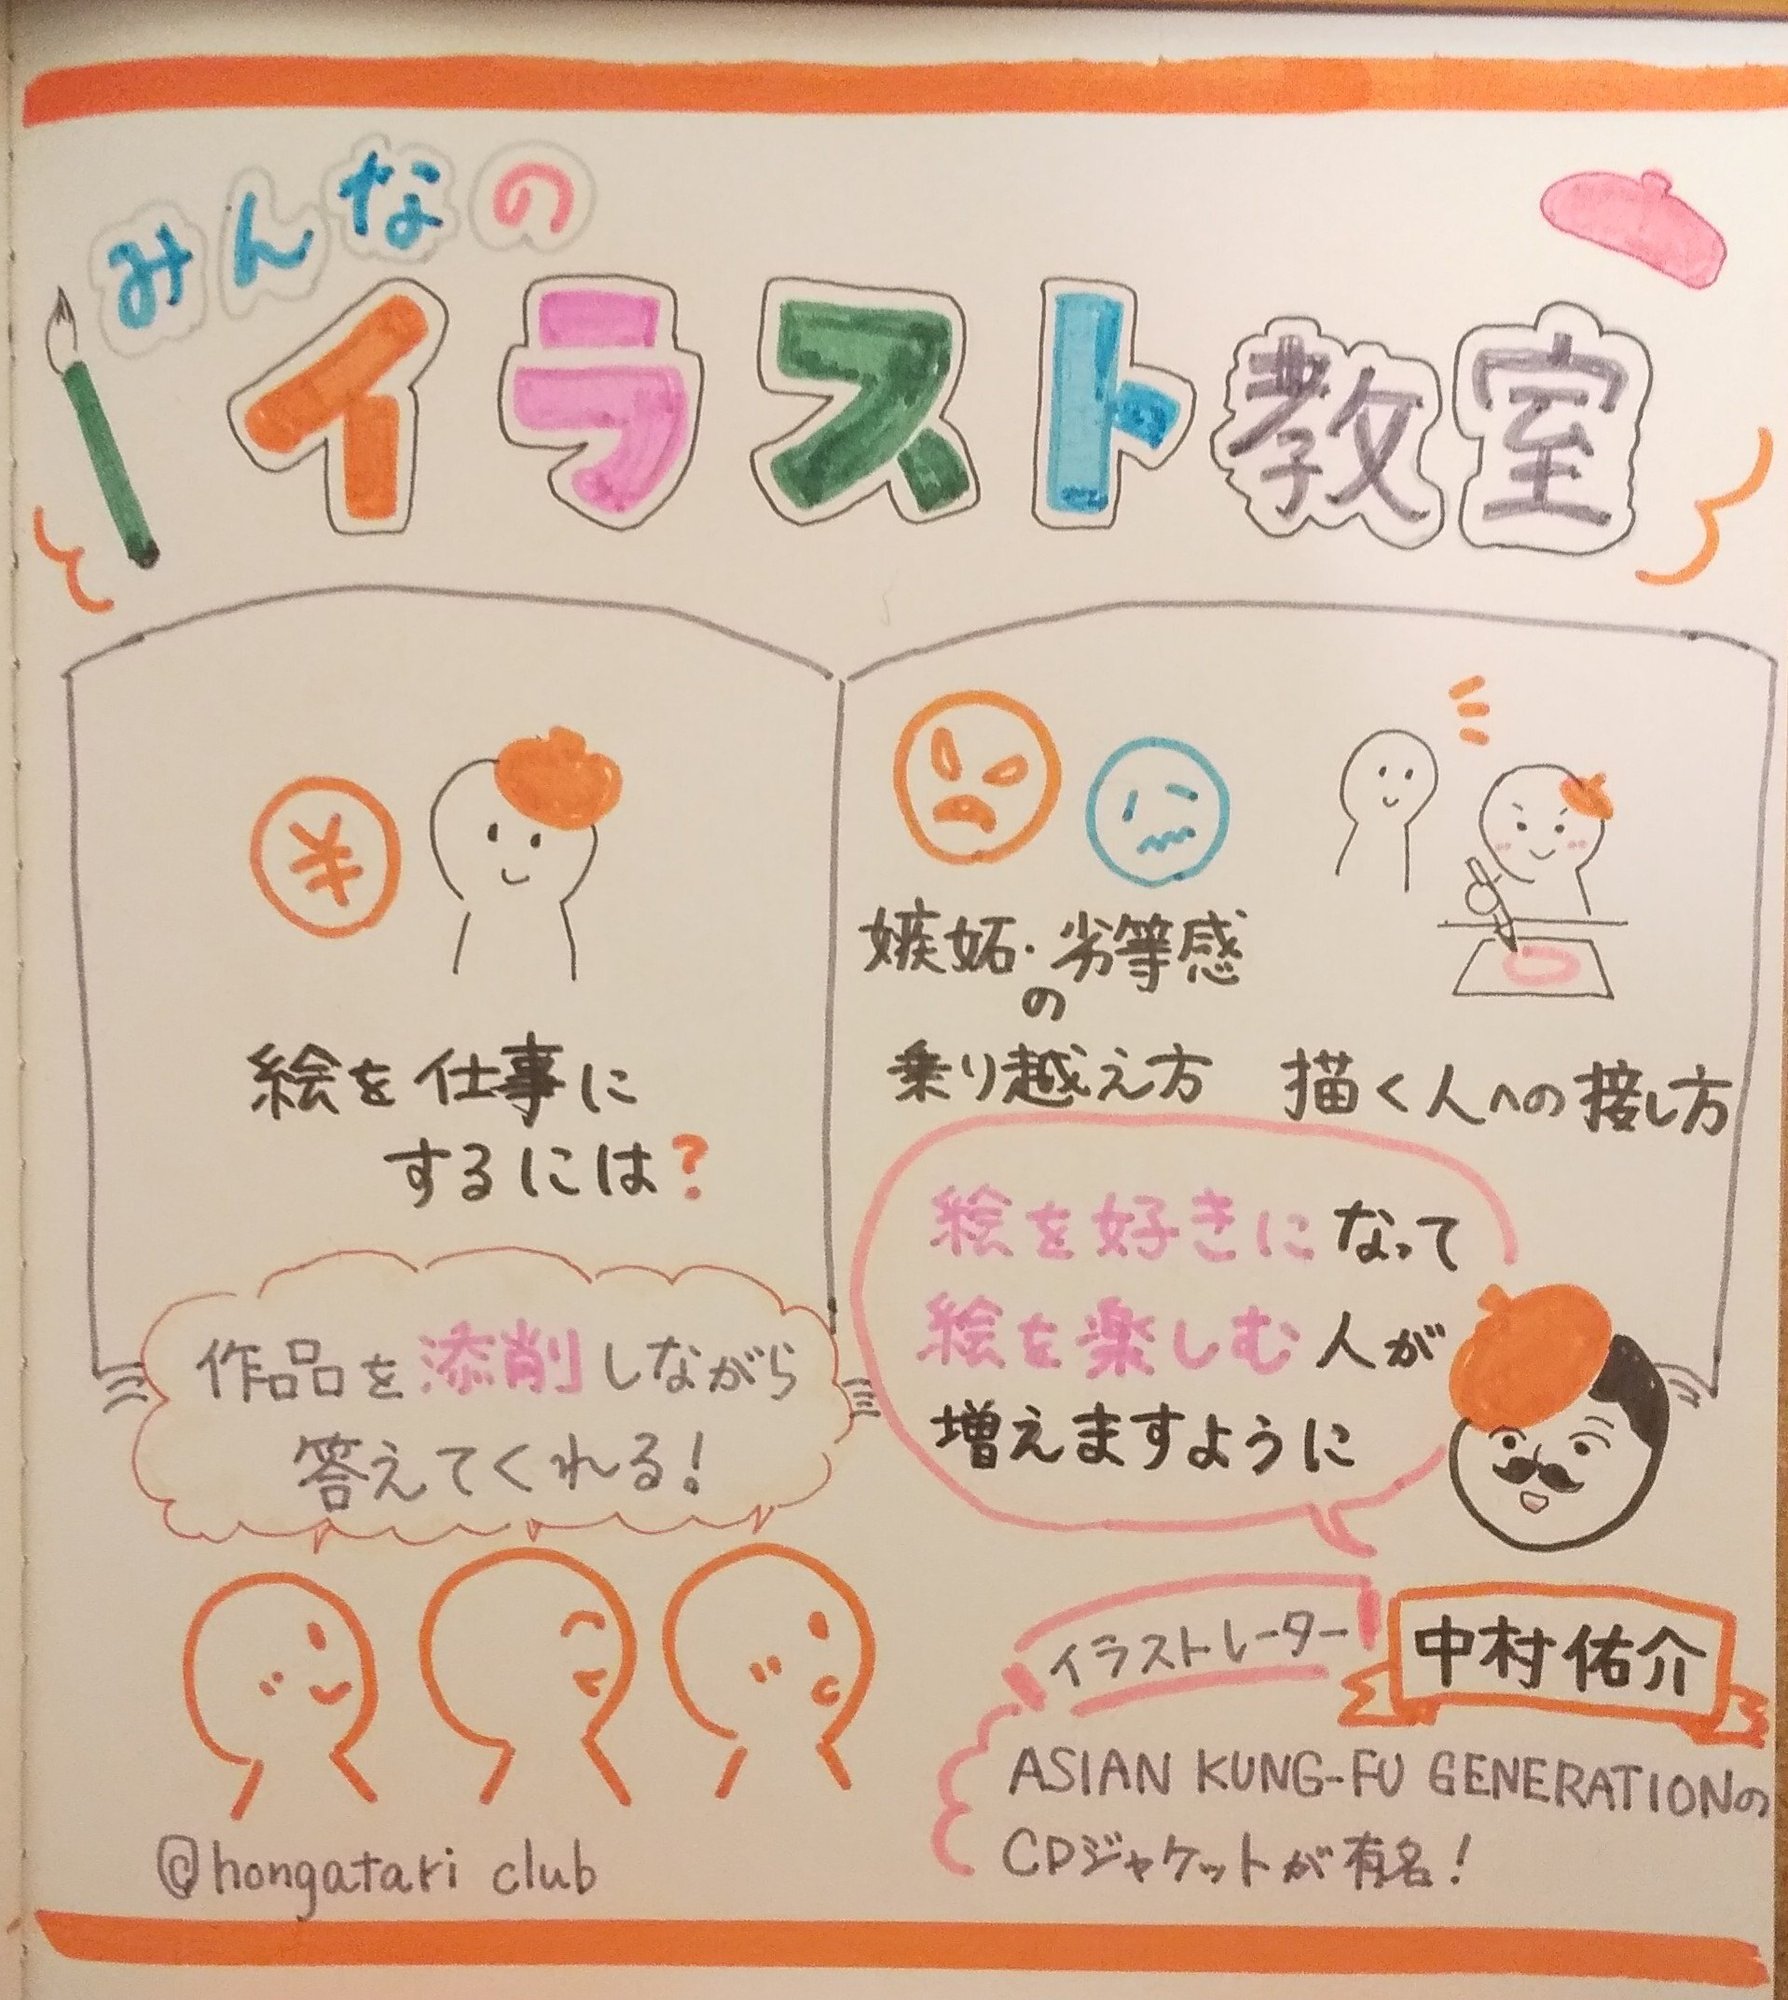 みんなの
イラスト教室
¥
絵を仕事に
するには?
嫉妬・劣等感
の
乗り越え方
描く人への接し方
作品を添削しながら
答えてくれる!
絵を好きになって
絵を楽しむ人が
増えますように
イラストレーター
中村佑介
ASIAN KUNG-FU GENERATIONの
CDジャケットが有名!
@hongatari club